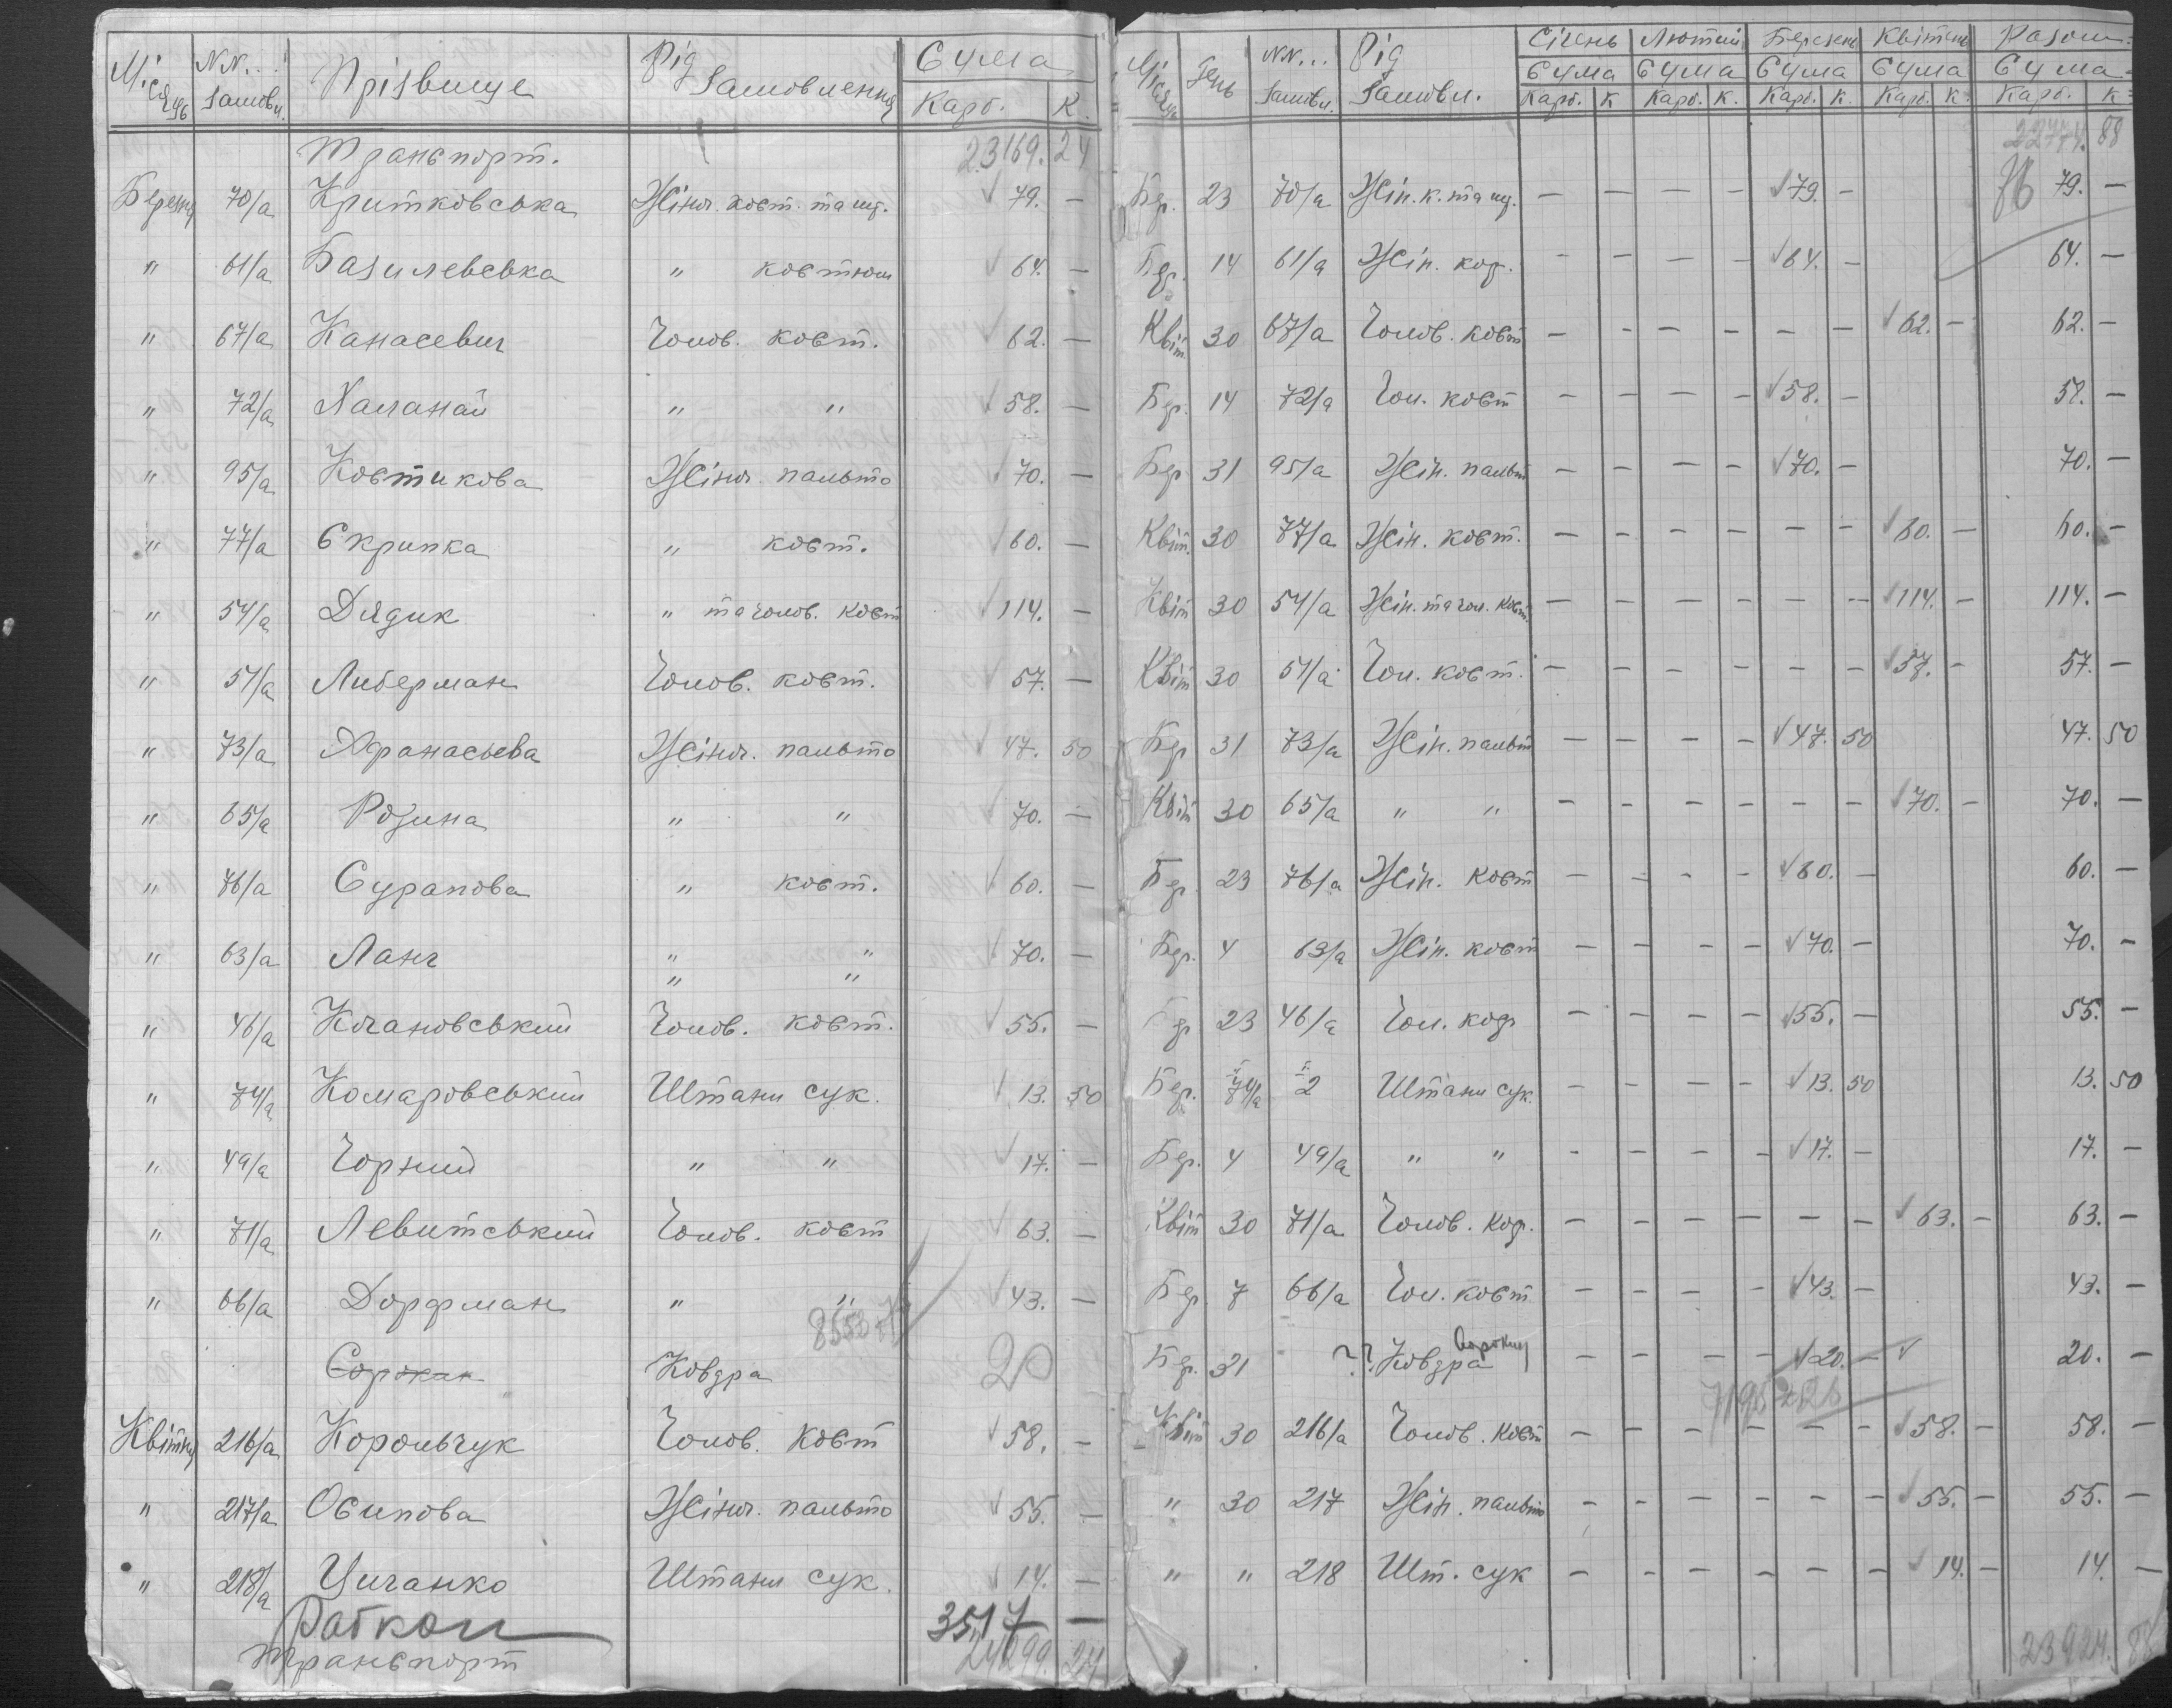 Місяць NN... Замовл. Прізвище Рід Замовлення Сума Карб. К.
Транспорт. 23169. 24
Березня 70/а Критковська Жіноч. кост. та щ. 79. —
" 61/а Базилевська " костюм 64. —
" 67/а Канасевич Чолов. кост. 62. —
" 72/а Халанай " " 58. —
" 95/а Костикова Жіноч. пальто 70. —
" 77/а Скрипка " кост. 60. —
" 54/а Дядик " та чолов. кост 114. —
" 51/а Либерман Чолов. кост. 57. —
" 73/а Афанасьева Жіноч. пальто 47. 50
" 65/а Розина " " 70. —
" 76/а Сурапова " кост. 60. —
" 63/а Ланг " " 70. —
" "
" 46/а Кочановський Чолов. кост. 55. —
" 74/а Комаровський Штани сук. 13. 50
" 49/а Чорний " " 17. —
" 71/а Левитський Чолов. кост 63. —
" 66/а Дорфман " " 43. —
Ковдра 20
Квітня 216/а Корольчук Чолов. Кост 58. —
" 217/а Осипова Жіноч. пальто 55. —
" 218/а Циганко Штани сук. 14. —
3517 —
Транспорт 24299. 24
Місяць День NN... Замовл. Рід Замовл. Січень Лютий Березень Квітень Разом
Сума Сума Сума Сума Сума
Карб. К Карб. К. Карб. К. Карб. К. Карб. К
22774. 88
Бер. 23 70/а Жін. к. та щ. — — — — 79. — 79. —
Бер. 14 61/а Жін. кос. — — — — 64. — 64. —
Квіт. 30 67/а Чолов. кост — — — — — — 62. — 62. —
Бер. 14 72/а Чол. кост — — — — 58. — 58. —
Бер 31 95/а Жін. пальт — — — — 70. — 70. —
Квіт. 30 77/а Жін. кост. — — — — — — 60. — 60. —
Квіт 30 54/а Жін. та чол. кост — — — — — — 114. — 114. —
Квіт 30 51/а Чол. кост. — — — — — — 57. — 57. —
Бер 31 73/а Жін. пальт — — — — 47. 50 47. 50
Квіт 30 65/а " " — — — — — — 70. — 70. —
Бер 23 76/а Жін. кост — — — — 60. — 60. —
Бер. 4 63/а Жін. кост — — — — 70. — 70. —
Бер 23 46/а Чол. кос — — — — 55. — 55. —
Бер. 74/а 2 Штани сук. — — — — 13. 50 13. 50
Бер. 4 49/а " " — — — — 17. — 17. —
Квіт 30 71/а Чолов. Кос. — — — — — — 63. — 63. —
Бер 7 66/а Чол. кост — — — — 43. — 43. —
Бер. 31 ?? Ковдра — — — — 20. — 20. —
Квіт 30 216/а Чолов. Кост — — — — — — 58. — 58. —
" 30 217 Жін. пальто — — — — — — 55. — 55. —
" " 218 Шт. сук — — — — — — 14. — 14. —
23924. 88